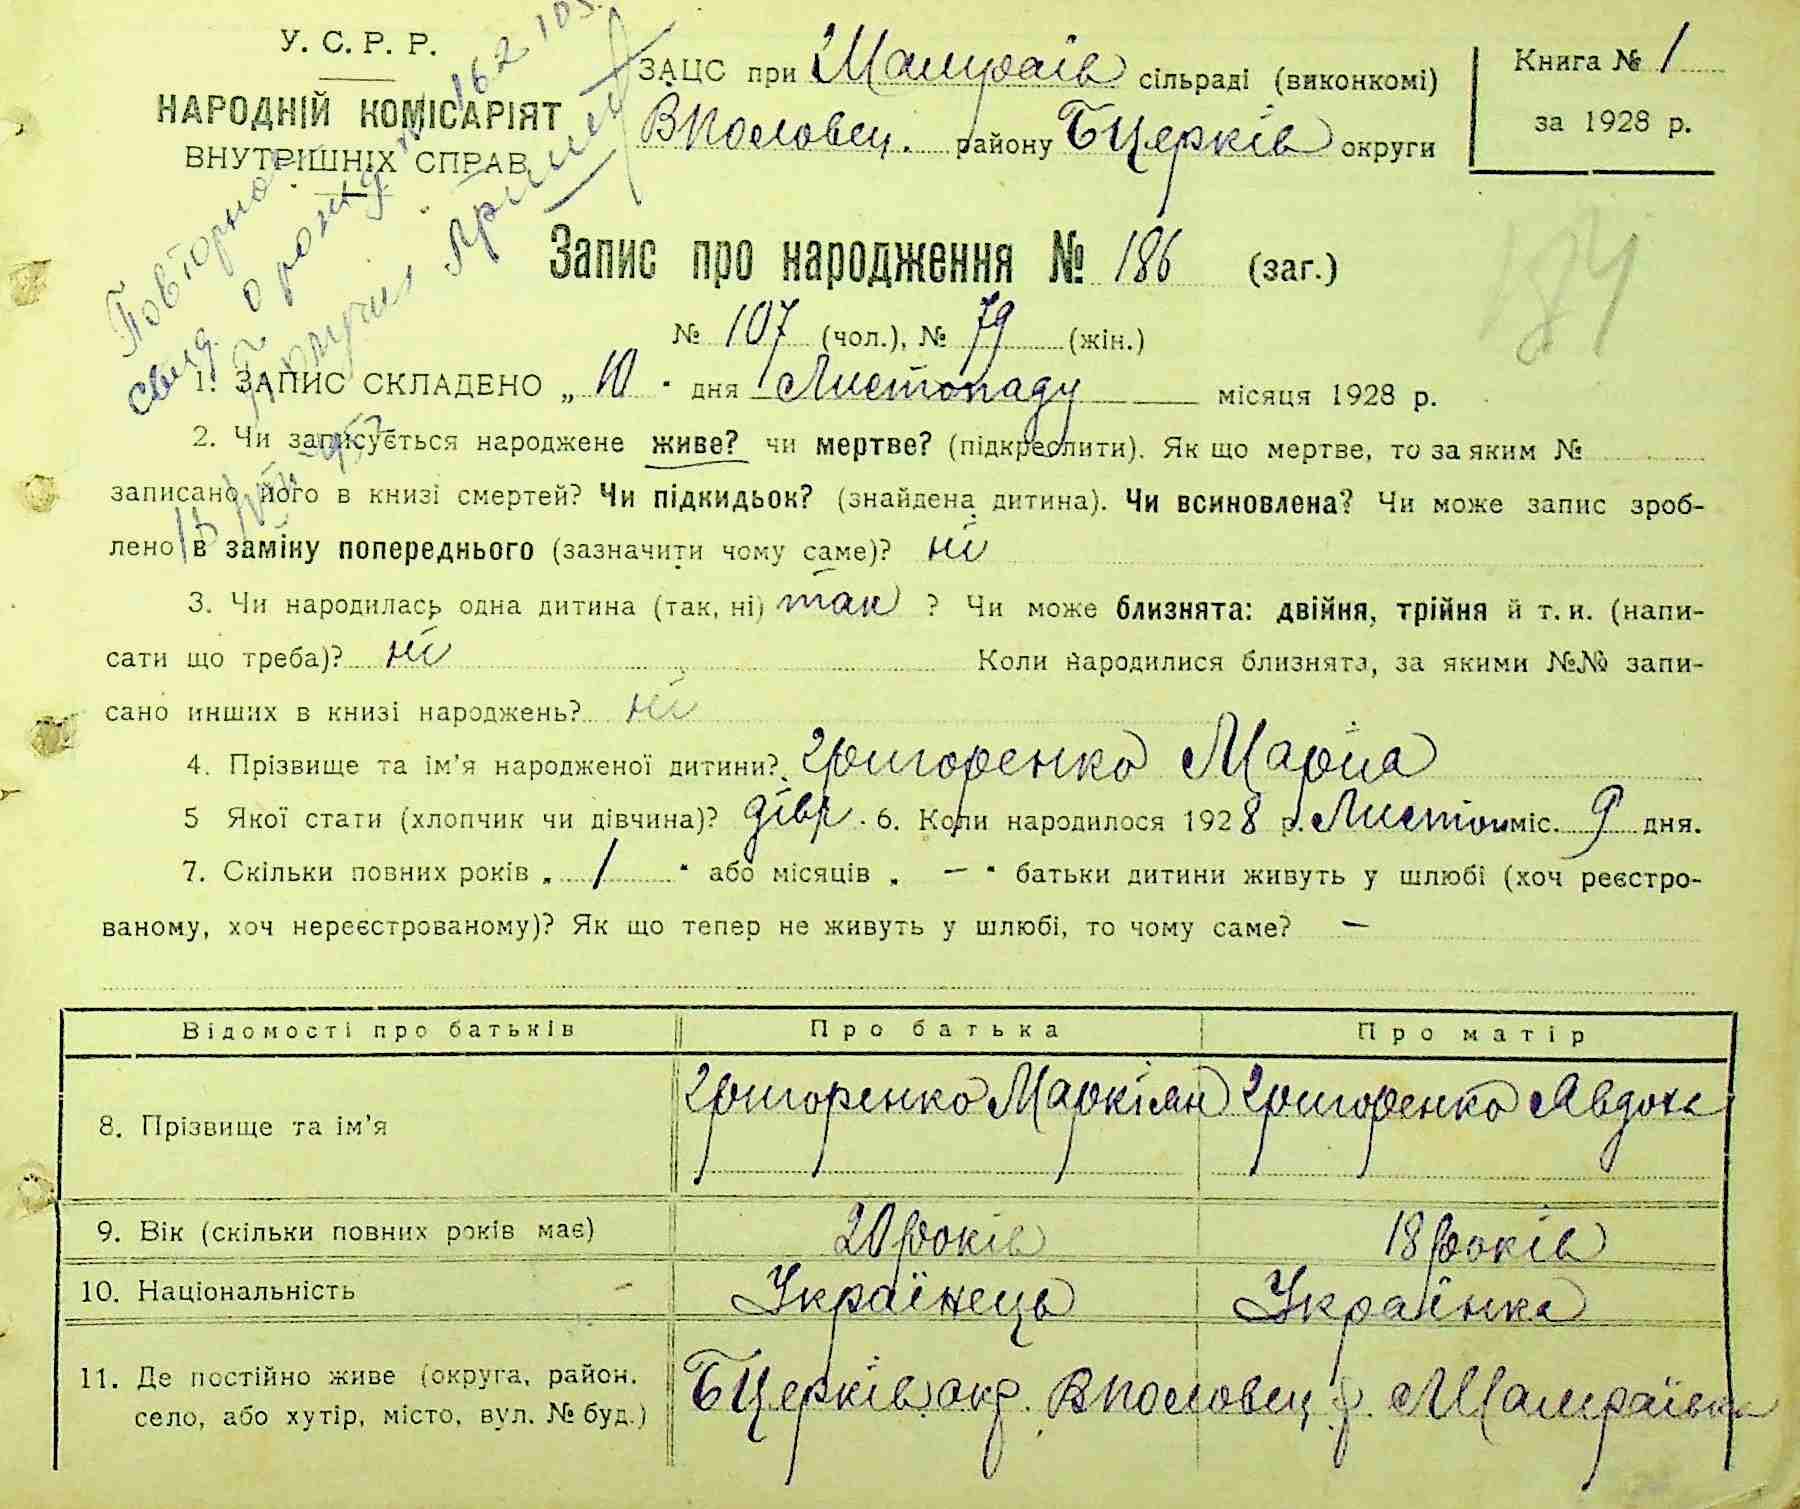 У. С. Р. Р.
НАРОДНІЙ КОМІСАРІЯТ
ВНУТРІШНІХ СПРАВ
ЗАЦС при Шамраїв сільраді (виконкомі)
району БЦерків округи
Книга № 1
за 1928 р.
Повторно
свид. о рожд
получил
Запис про народження № 186 (заг.)
184
№ 107 (чол.), № 79 (жін.)
1. ЗАПИС СКЛАДЕНО „ 10 " дня Листопаду місяця 1928 р.
2. Чи записується народжене живе? чи мертве? (підкреслити). Як що мертве, то за яким №
записано його в книзі смертей? Чи підкидьок? (знайдена дитина). Чи всиновлена? Чи може запис зроб-
лено в заміну попереднього (зазначити чому саме)? ні
3. Чи народилась одна дитина (так, ні) так ? Чи може близнята: двійня, трійня й т. и. (напи-
сати що треба)? ні Коли народилися близнята, за якими №№ запи-
сано инших в книзі народжень? ні
4. Прізвище та ім'я народженої дитини? Григоренко Марія
5 Якої стати (хлопчик чи дівчина)? дівч. 6. Коли народилося 1928 р. Листоп міс. 9 дня.
7. Скільки повних років „ 1 " або місяців „ — " батьки дитини живуть у шлюбі (хоч реєстро-
ваному, хоч нереєстрованому)? Як що тепер не живуть у шлюбі, то чому саме? —
Відомості про батьків Про батька Про матір
8. Прізвище та ім'я Григоренко Маркіян Григоренко Явдоха
9. Вік (скільки повних років має) 20 років 18 років
10. Національність Українець Українка
11. Де постійно живе (округа, район, село, або хутір, місто, вул. № буд.) БЦерків. окр. ВПоловец р. Шамраївка